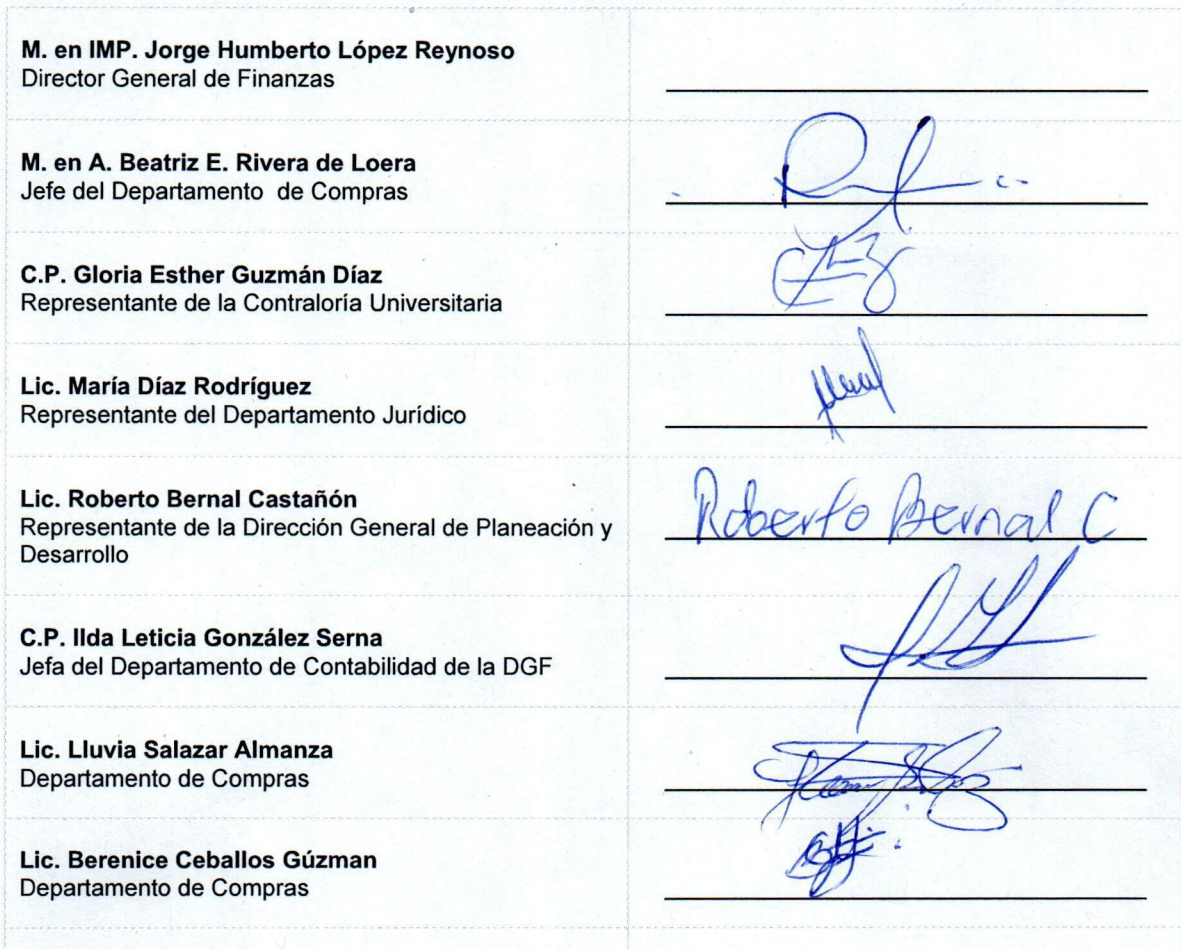 M. en IMP. Jorge Humberto López Reynoso
Director General de Finanzas
M. en A. Beatriz E. Rivera de Loera
Jefe del Departamento de Compras
C.P. Gloria Esther Guzmán Díaz
Representante de la Contraloría Universitaria
Lic. María Díaz Rodríguez
Representante del Departamento Jurídico
Lic. Roberto Bernal Castañón
Representante de la Dirección General de Planeación y
Desarrollo
Roberto Bernal C
C.P. Ilda Leticia González Serna
Jefa del Departamento de Contabilidad de la DGF
Lic. Lluvia Salazar Almanza
Departamento de Compras
Lic. Berenice Ceballos Gúzman
Departamento de Compras